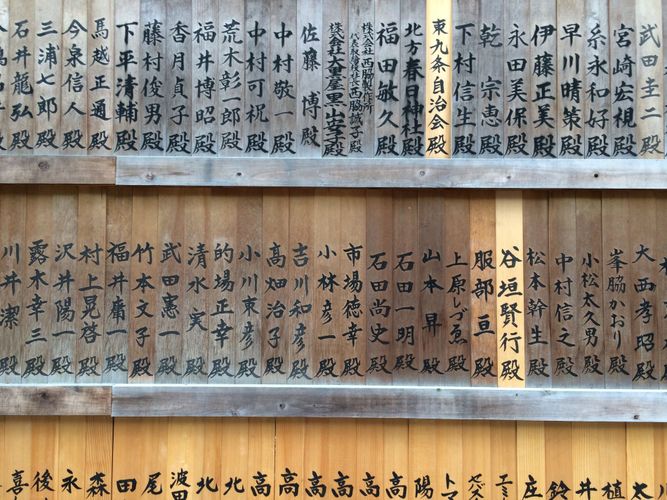 武田圭二殿
宮崎宏視殿
糸永和好殿
早川晴策殿
伊藤正美殿
永田美保殿
乾宗恵殿
下村信生殿
東九条自治会殿
北方春日神社殿
福田敏久殿
株式会社西脇製作所
代表取締役西脇誠子殿
佐藤博殿
中村敬一殿
中村可祝殿
荒木彰一郎殿
福井博昭殿
香月貞子殿
藤村俊男殿
下平清輔殿
馬越正通殿
今泉信人殿
三浦七郎殿
石井龍弘殿
大西孝昭殿
峯脇かおり殿
小松太久男殿
中村信之殿
松本幹生殿
谷垣賢行殿
服部亘殿
上原しづゑ殿
山本昇殿
石田一明殿
石田尚史殿
市場徳幸殿
小林彦一殿
吉川和彦殿
高畑治子殿
小川東彦殿
的場正幸殿
清水実殿
武田憲一殿
竹本文子殿
福井庸一殿
村上晃啓殿
沢井陽一殿
露木幸三殿
川井潔殿
太
植
井
鈴
庄
エミ
セバス
トマ
陽
高
高
高
高
高
高
北
北
波田
尾
田
森
永
後
喜